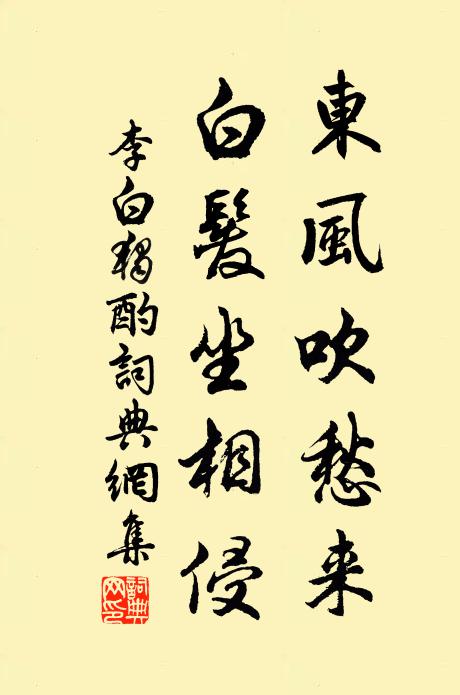 東風吹愁来
白髮坐相侵
李白獨酌詞典網集
詞典
网印